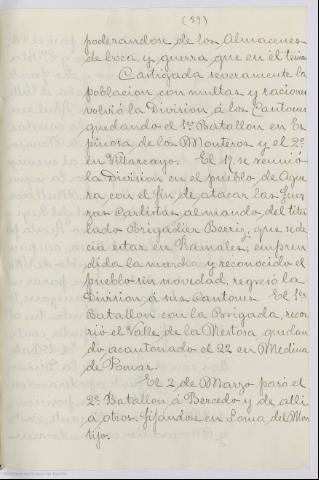 (89)
poderandose de los Almacenes
de boca y guerra que en él tenia
Castigada severamente la
poblacion con multas y raciones
volvió la Division á los Cantones
quedando el 1er Batallon en Es
pinosa de los Monteros y el 2º
en Villarcayo. El 17 se reunió
la Division en el pueblo de Ague
ra con el fin de atacar las fuer
zas Carlistas al mando del titu
lado Brigadier Berriz, que se de
cia estar en Ramales, empren
dida la marcha y reconocido el
pueblo sin novedad, regresó la
Division á sus Cantones. El 1er
Batallon con la Brigada, recor
rió el Valle de la Mestosa quedan
do acantonado el 22 en Medina
de Pomar.
El 2 de Marzo pasó el
2º Batallon á Bercedo y de alli
á otros fijandose en Loma del Mon
tijo.